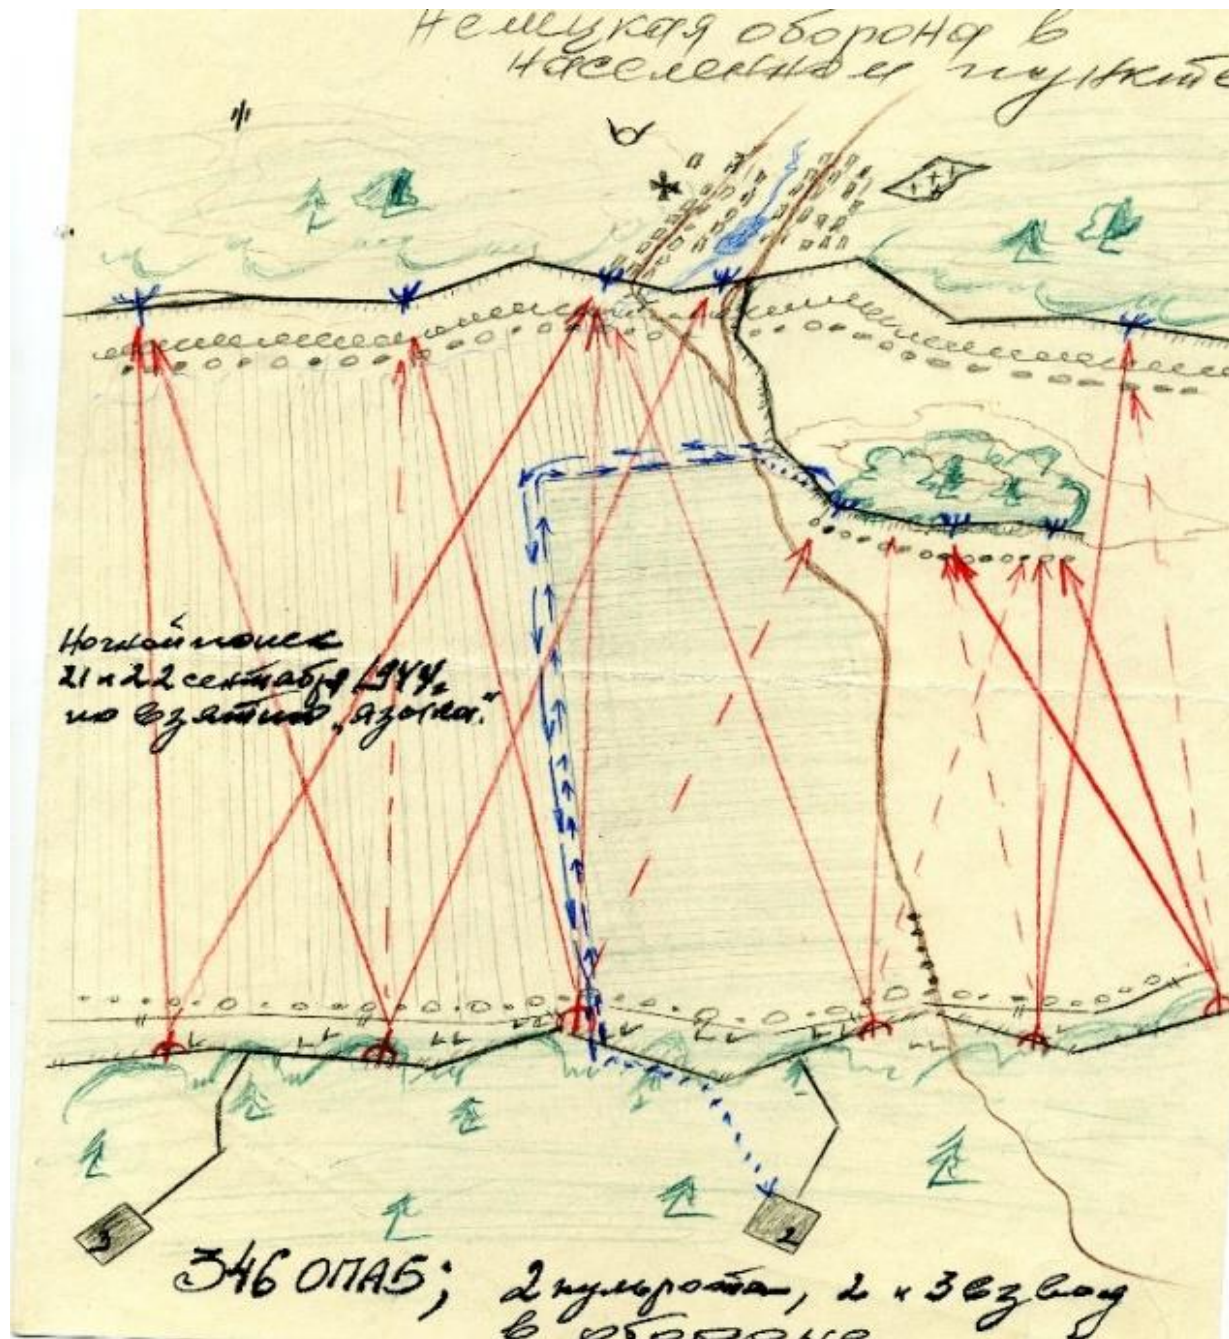 Немецкая оборона в
населенном пункте
Ночной поиск
21 и 22 сентября 1944г
по взятию „языка“
3
2
346 ОПАБ; 2 пульрота, 2 и 3 взвод
в обороне